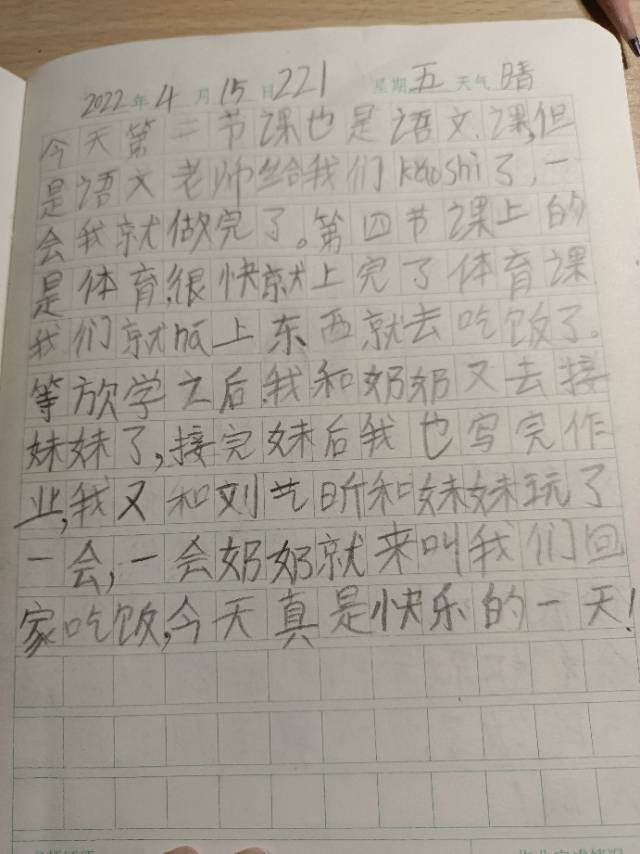 2022年4月15日221 星期五天气晴
今天第二节课也是语文课,但
是语文老师给我们kaoshi了,一
会我就做完了。第四节课上的
是体育,很快就上完了体育课
我们就na上东西就去吃饭了。
等放学之后,我和奶奶又去接
妹妹了,接完妹后我也写完作
业,我又和刘艺昕和妹妹玩了
一会,一会奶奶就来叫我们回
家吃饭,今天真是快乐的一天!